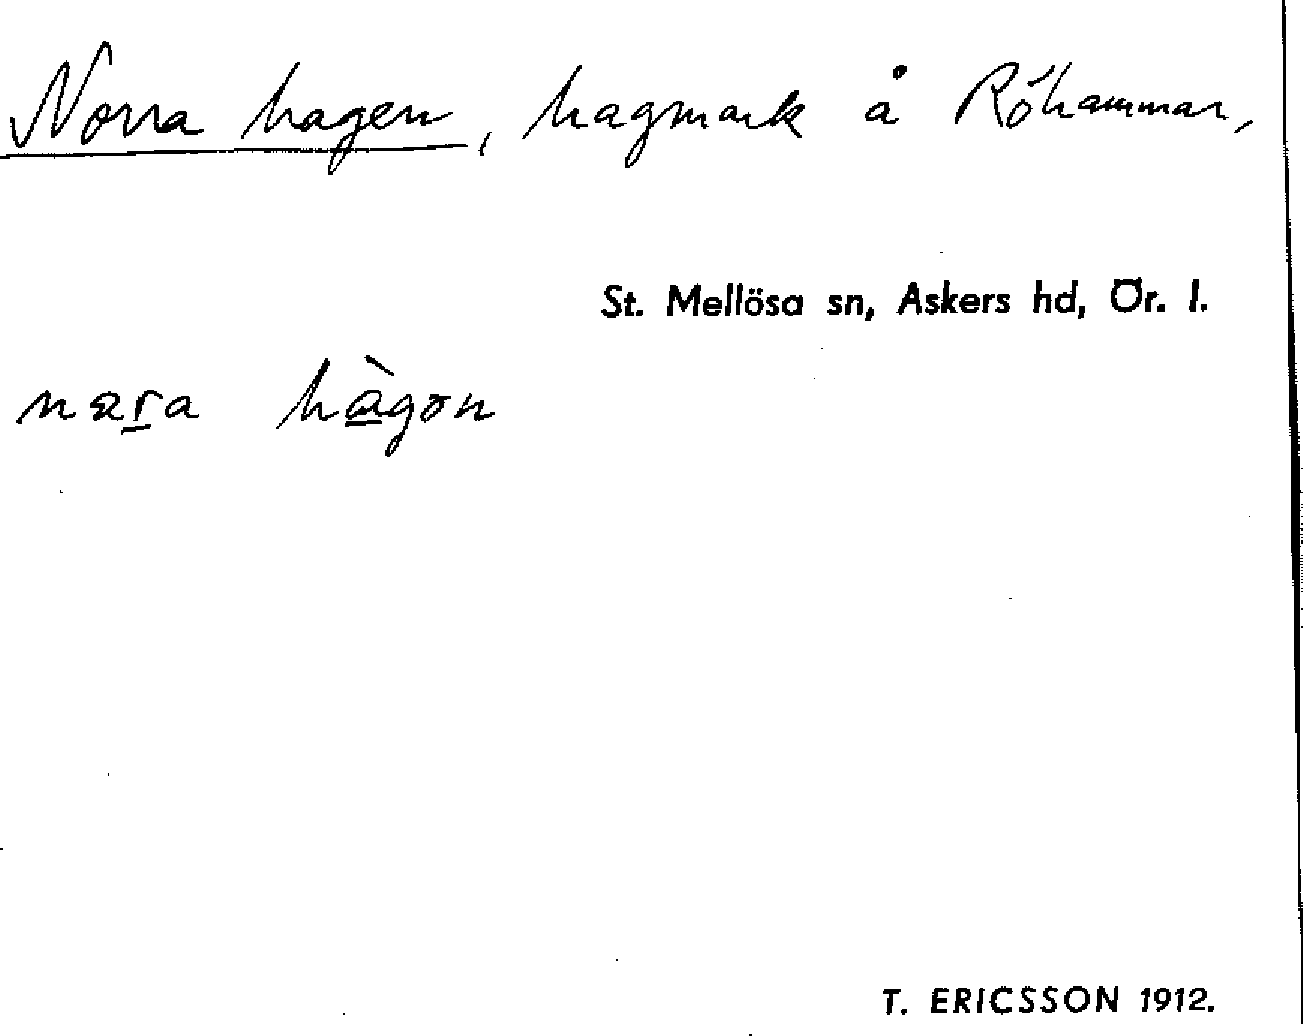 Norra hagen, hagmark å Röhammar,
St. Mellösa sn, Askers hd, Ör. l.
hàgən
T. ERICSSON 1912.